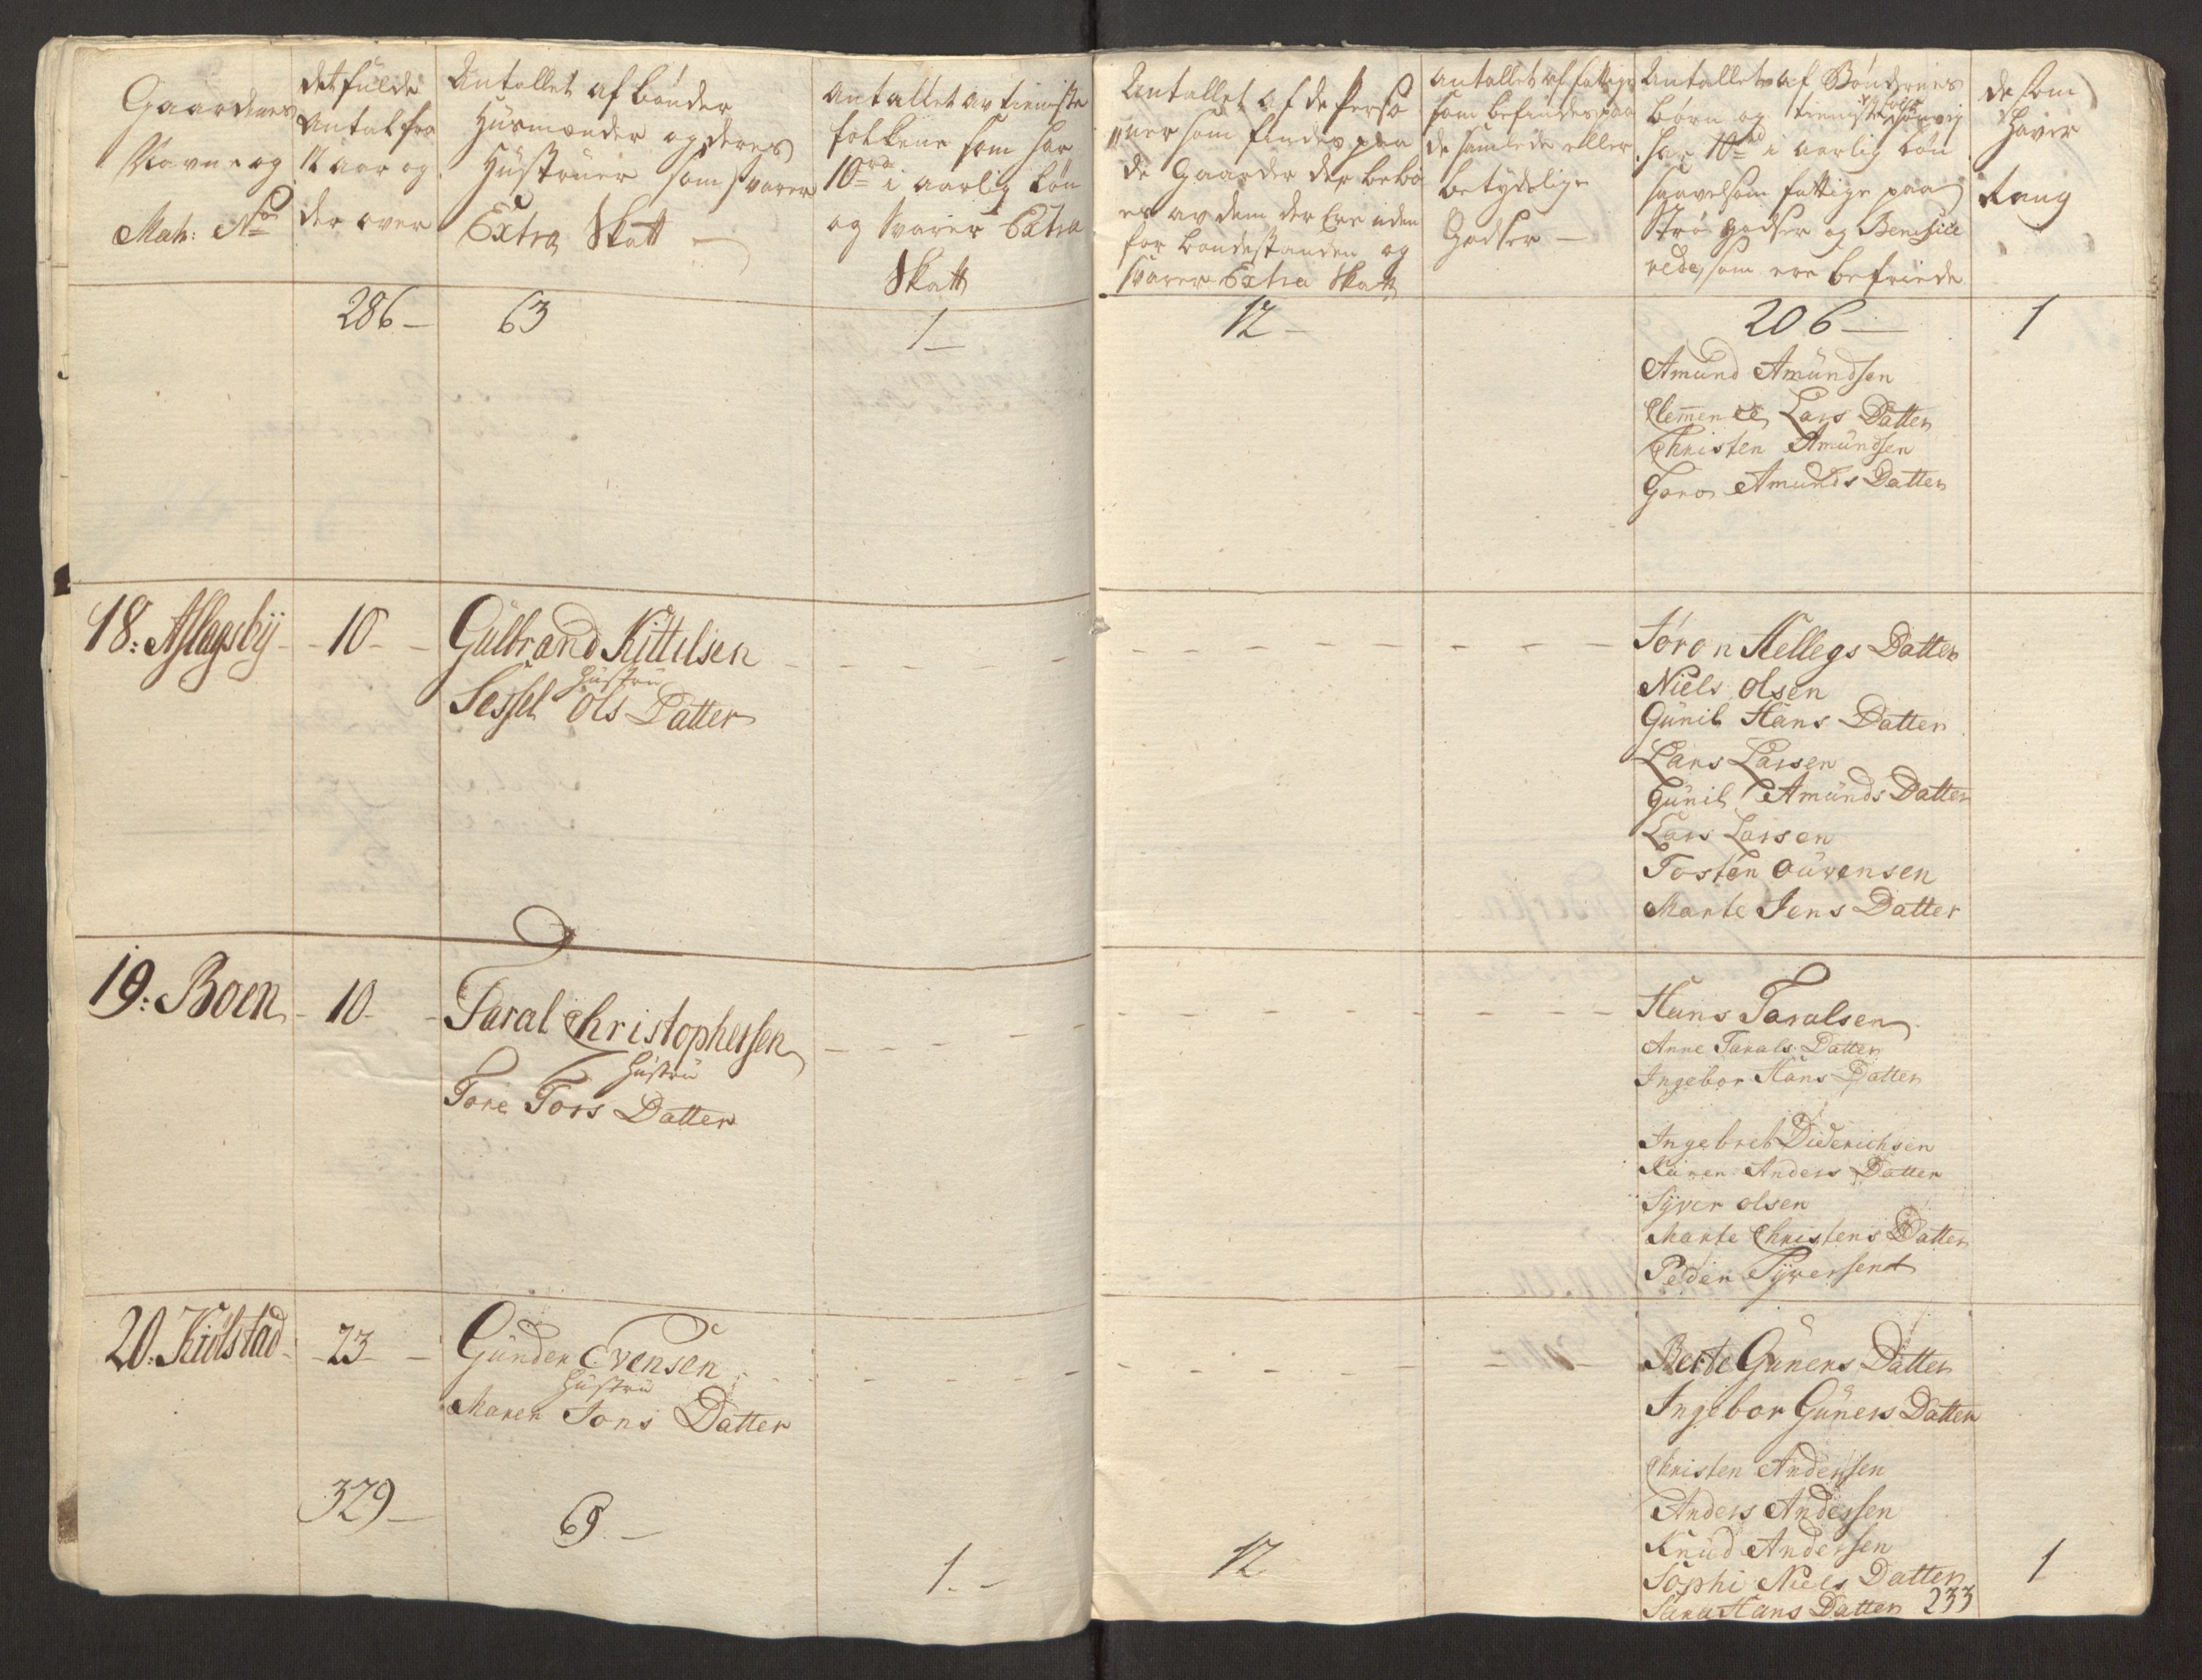 Gaardenes
Navne og
Matr: No
det fulde
Antal fra
12 aar og
der over
Antallet af bönder
Husmænder og deres
Hustruer som svarer
Extra Skatt
Antallet av tieniste
folkene som har
10 rd i aarlig Lön
og svarer Extra
Skatt
Antallet af de Perso
ner som findes paa
de Gaarder der bebo
es av dem der Ere uden
for bondestanden og
svarer Extra Skatt
Antallet af fattige
som befindes paa
de samlede eller
betydelige
Godser
Antallet af Bøndernes
börn og tieniste folk
har 10 rd i aarlig Lön
saavelsom fattige paa
Strö godser og Benefice
rede, som ere befriede
de som
haver
Rang
286 63 1 12 206 1
Amund Amundsen
Clemence Lars Datter
Christen Amundsen
Goro Amunds Datter
18: Aslagsbÿ 10 Gulbrand Kittilsen
Hustru
Sessel Ols Datter
Jöron Kellegs Datter
Niels Olsen
Gunil Hans Datter
Lars Larsen
Gunil Amunds Datter
Lars Larsen
Tosten Ouvensen
Marte Jens Datter
19: Boen 10 Taral Christophersen
Hustru
Tore Tors Datter
Hans Taralsen
Anne Tarals Datter
Ingebor Hans Datter
Ingebret Diderichsen
Karen Anders Datter
Syver olsen
Marte Christens Datter
Peder Syversen
20. Kiölstad 23 Gunder Evensen
Hustru
Maren Jons Datter
Berte Guners Datter
Ingebor Guners Datter
Christen Andersen
Anders Andersen
Knud Andersen
Sophi Niels Datter
Sara Hans Datter 233
329 69 1 12 1